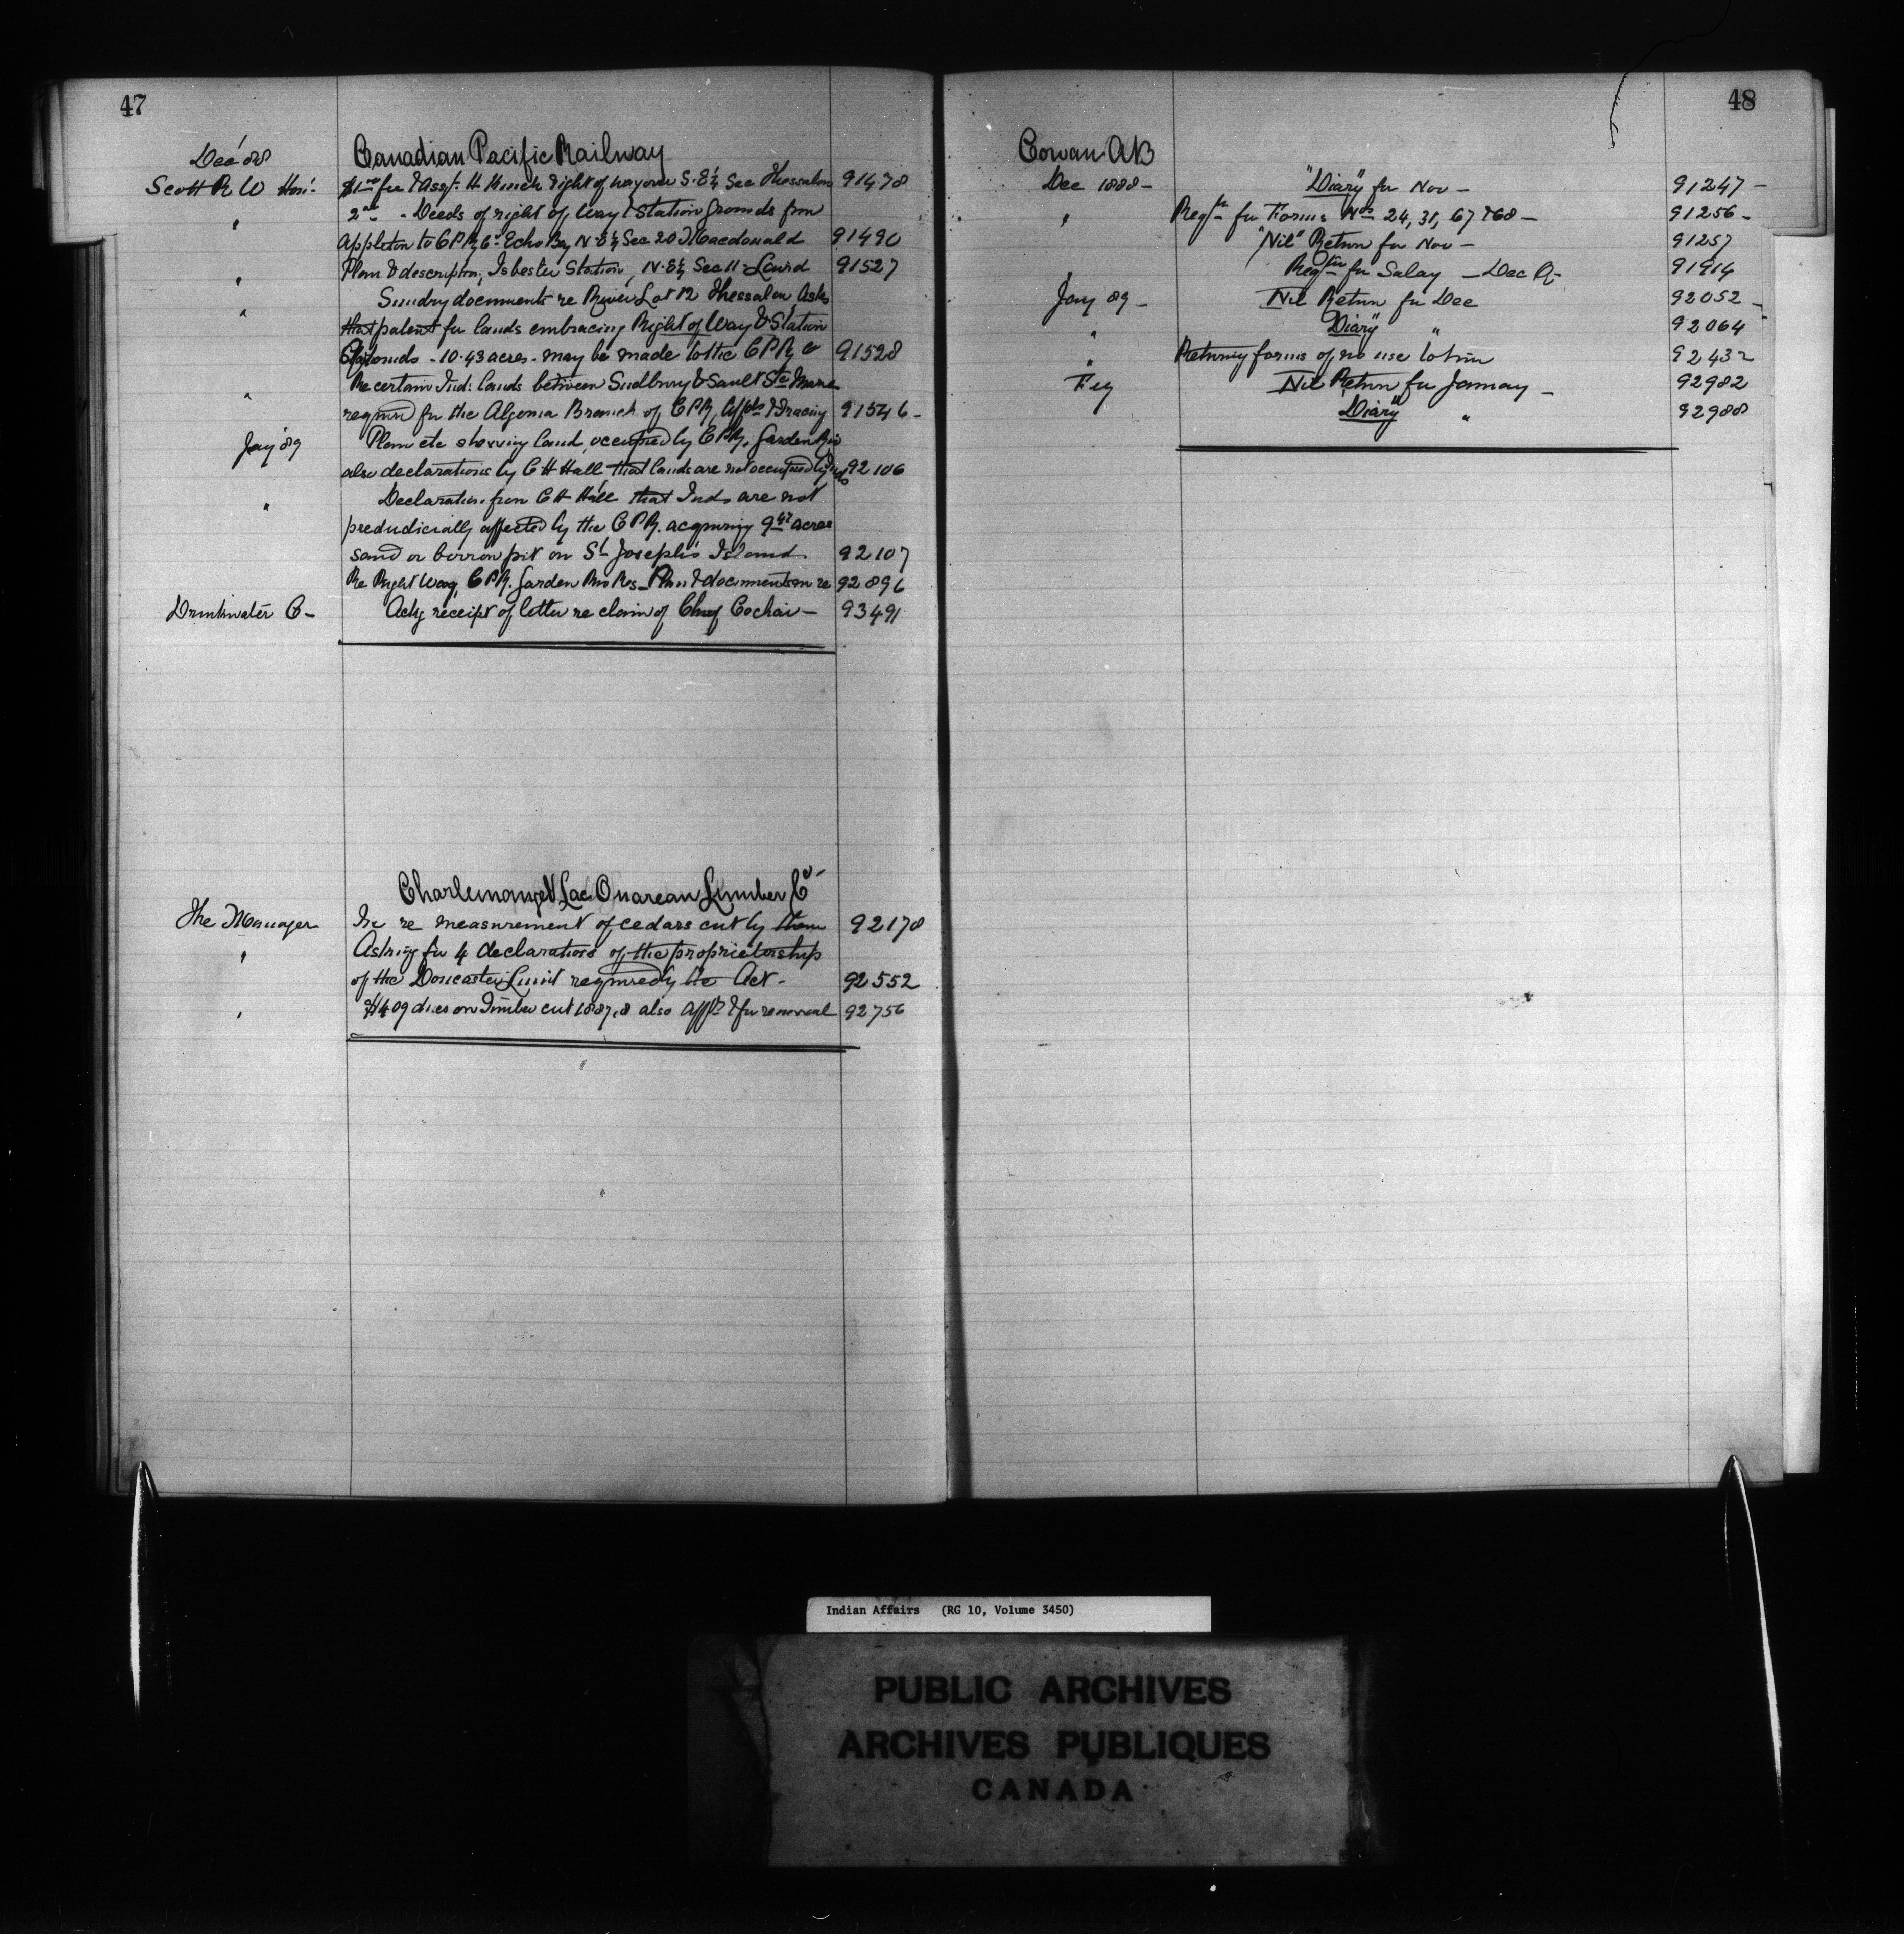 47
Dec '88
Canadian Pacific Railway
Scott R W Hon:
$1.00 fee & Assgt. H Hinch right of way over S.E¼ Sec Thessalon 91478
" 2.00 - Deeds of right of Way & Station grounds from
Appleton to C P Ry Co Echo Bay N.E¼ Sec 20 T. Macdonald 91490
" Plan & description, Isbester Station, N.E¼ Sec 11 - Laird 91527
" Sundry documents re River Lot 12 Thessalon Asks
that patent for lands embracing Right of Way & Station
Grounds - 10.43 acres - may be made to the C P Ry Co 91528
" Re certain Ind: lands between Sudbury & Sault Ste Marie
required for the Algoma Branch of C P R, & tracing 91546 -
Jany '89 Plan etc showing land occupied by C P R, Garden Riv
also declarations by C H Hall, that lands are not occupied by Inds 92106
" Declaration from C H Hall that Inds are not
predudicially affected by the C P R. acquiring 9.47 acres
sand or borrow pit on St Joseph's Island 92107
Re Right Way, C P R. Garden Riv Res - Plan & documents in re 92896
Drinkwater C - Ackg receipt of letter re claim of Chief Cochai - 93491
Charlemange & Lac Ouarean Lumber Co -
The Manager In re measurement of cedars cut by them 92178
" Asking for 4 declarations of the proprietorship
of the Doncaster Limit required by the Act - 92552
" dues on Timber cut 1887.8 also & for renewal 92756
48
Cowan A B
Dec 1888 - "Diary" for Nov - 91247 -
" Reqn for Forms Nos 24, 31, 67 & 68 - 91256 -
"Nil" Return for Nov - 91257
Reqtn for Salary - Dec Qr 91914
Jany 89 - Nil Return for Dec 92052 -
" Diary " 92064
" Returning forms of no use to him 92432
Feb Nil Return for January - 92982
Diary " 92988
Indian Affairs (RG 10, Volume 3450)
PUBLIC ARCHIVES
ARCHIVES PUBLIQUES
CANADA